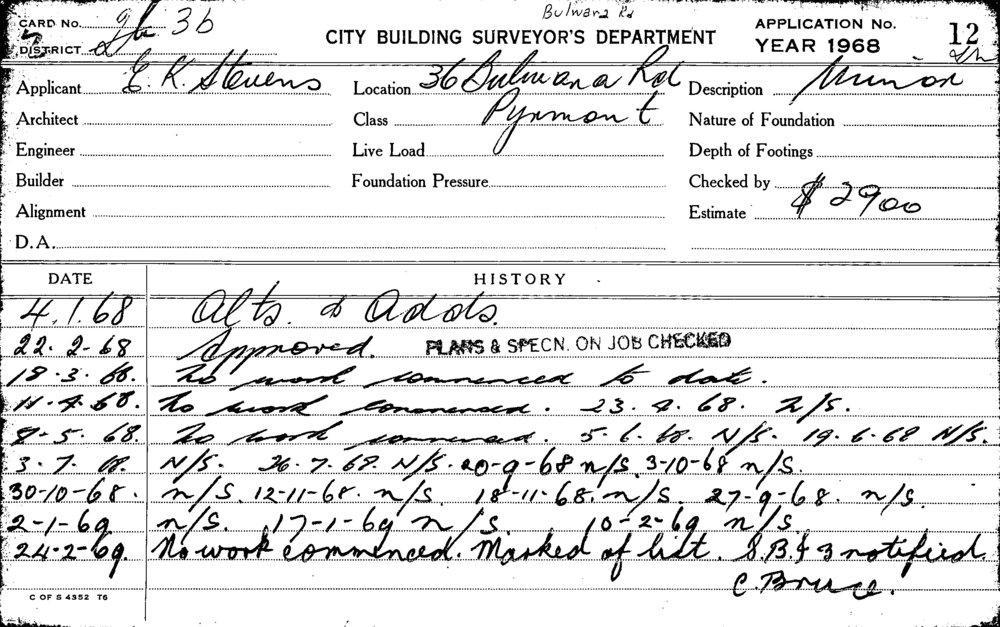 Bulwara Rd
CARD No. 36
CITY BUILDING SURVEYOR'S DEPARTMENT
APPLICATION No. 12
DISTRICT
YEAR 1968
Applicant E. K. Stevens Location 36 Bulwara Rd Description Minor
Architect Class Pyrmont Nature of Foundation
Engineer Live Load Depth of Footings
Builder Foundation Pressure Checked by
Alignment Estimate $2900
D.A.
DATE HISTORY
4.1.68 Alts. & Adds.
22.2-68 Approved. PLANS & SPECN. ON JOB CHECKED
18.3.68. No work commenced to date.
11.4.68. No work commenced. 23.4.68. N/S.
8-5.68. No work commenced. 5.6.68. N/S. 19.6.68 N/S.
3.7.68. N/S. 26.7.68. N/S. 20-9-68 n/s. 3-10-68 n/s.
30-10-68. n/s. 12-11-68. n/s 18-11-68. n/s. 27-9-68. n/s
2-1-69 n/s. 17-1-69 n/s 10-2-69 n/s
24-2-69. No work commenced. Marked of list. S.B. & 3 notified
C. Bruce.
C OF S 4352 T6